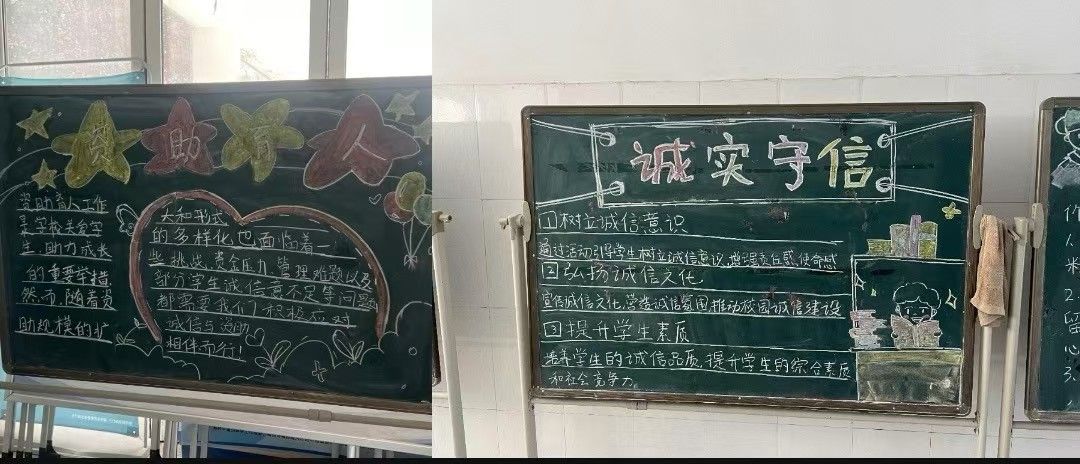 资助育人
资助育人工作
是学校关爱学
生、助力成长
的重要举措
然而,随着资
助规模的扩
大和形式
的多样化也面临着一
些挑战。资金压力、管理难题以及
部分学生诚信意识不足等问题
都需要我们积极应对
诚信与资助
相伴而行!
诚实守信
1树立诚信意识
通过活动引导学生树立诚信意识,增强责任感,使命感
2弘扬诚信文化
宣传诚信文化,营造诚信氛围,推动校园诚信建设
3提升学生素质
培养学生的诚信品质,提升学生的综合素质
和社会竞争力。